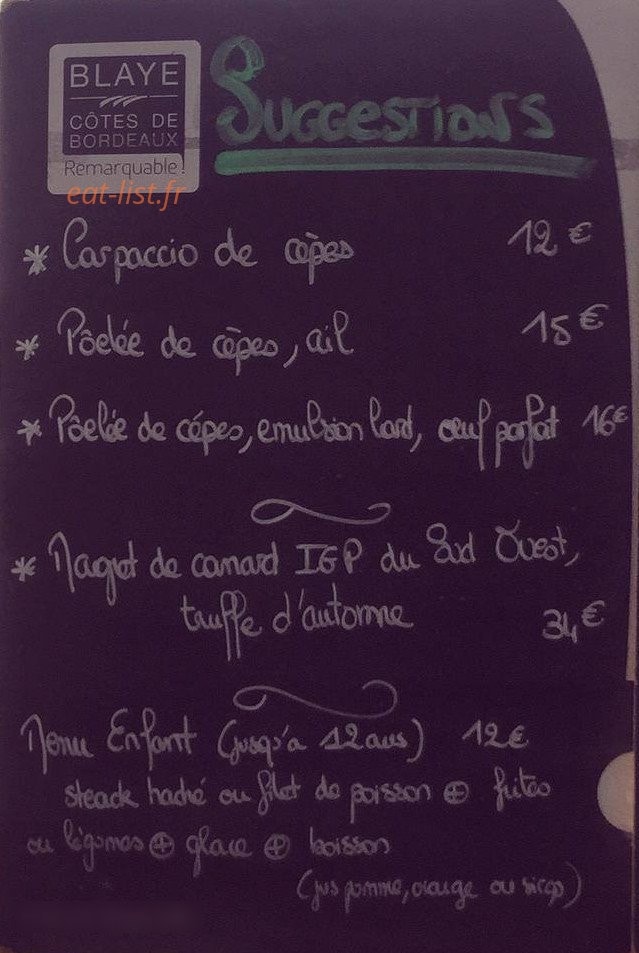 BLAYE
CÔTES DE
BORDEAUX
Remarquable!
eat-list.fr
SUGGESTIONS
* Carpaccio de cèpes 12€
* Pôelée de cèpes, ail 15€
* Pôelée de cépes, emulsion lard, œuf parfait 16€
* Magret de canard IGP du Sud Ouest,
truffe d'automne 34€
Menu Enfant (jusqu'a 12 ans) 12€
steack haché ou filet de poisson ⊕ frites
ou légumes ⊕ glace ⊕ boisson
(jus pomme, orange ou sirop)